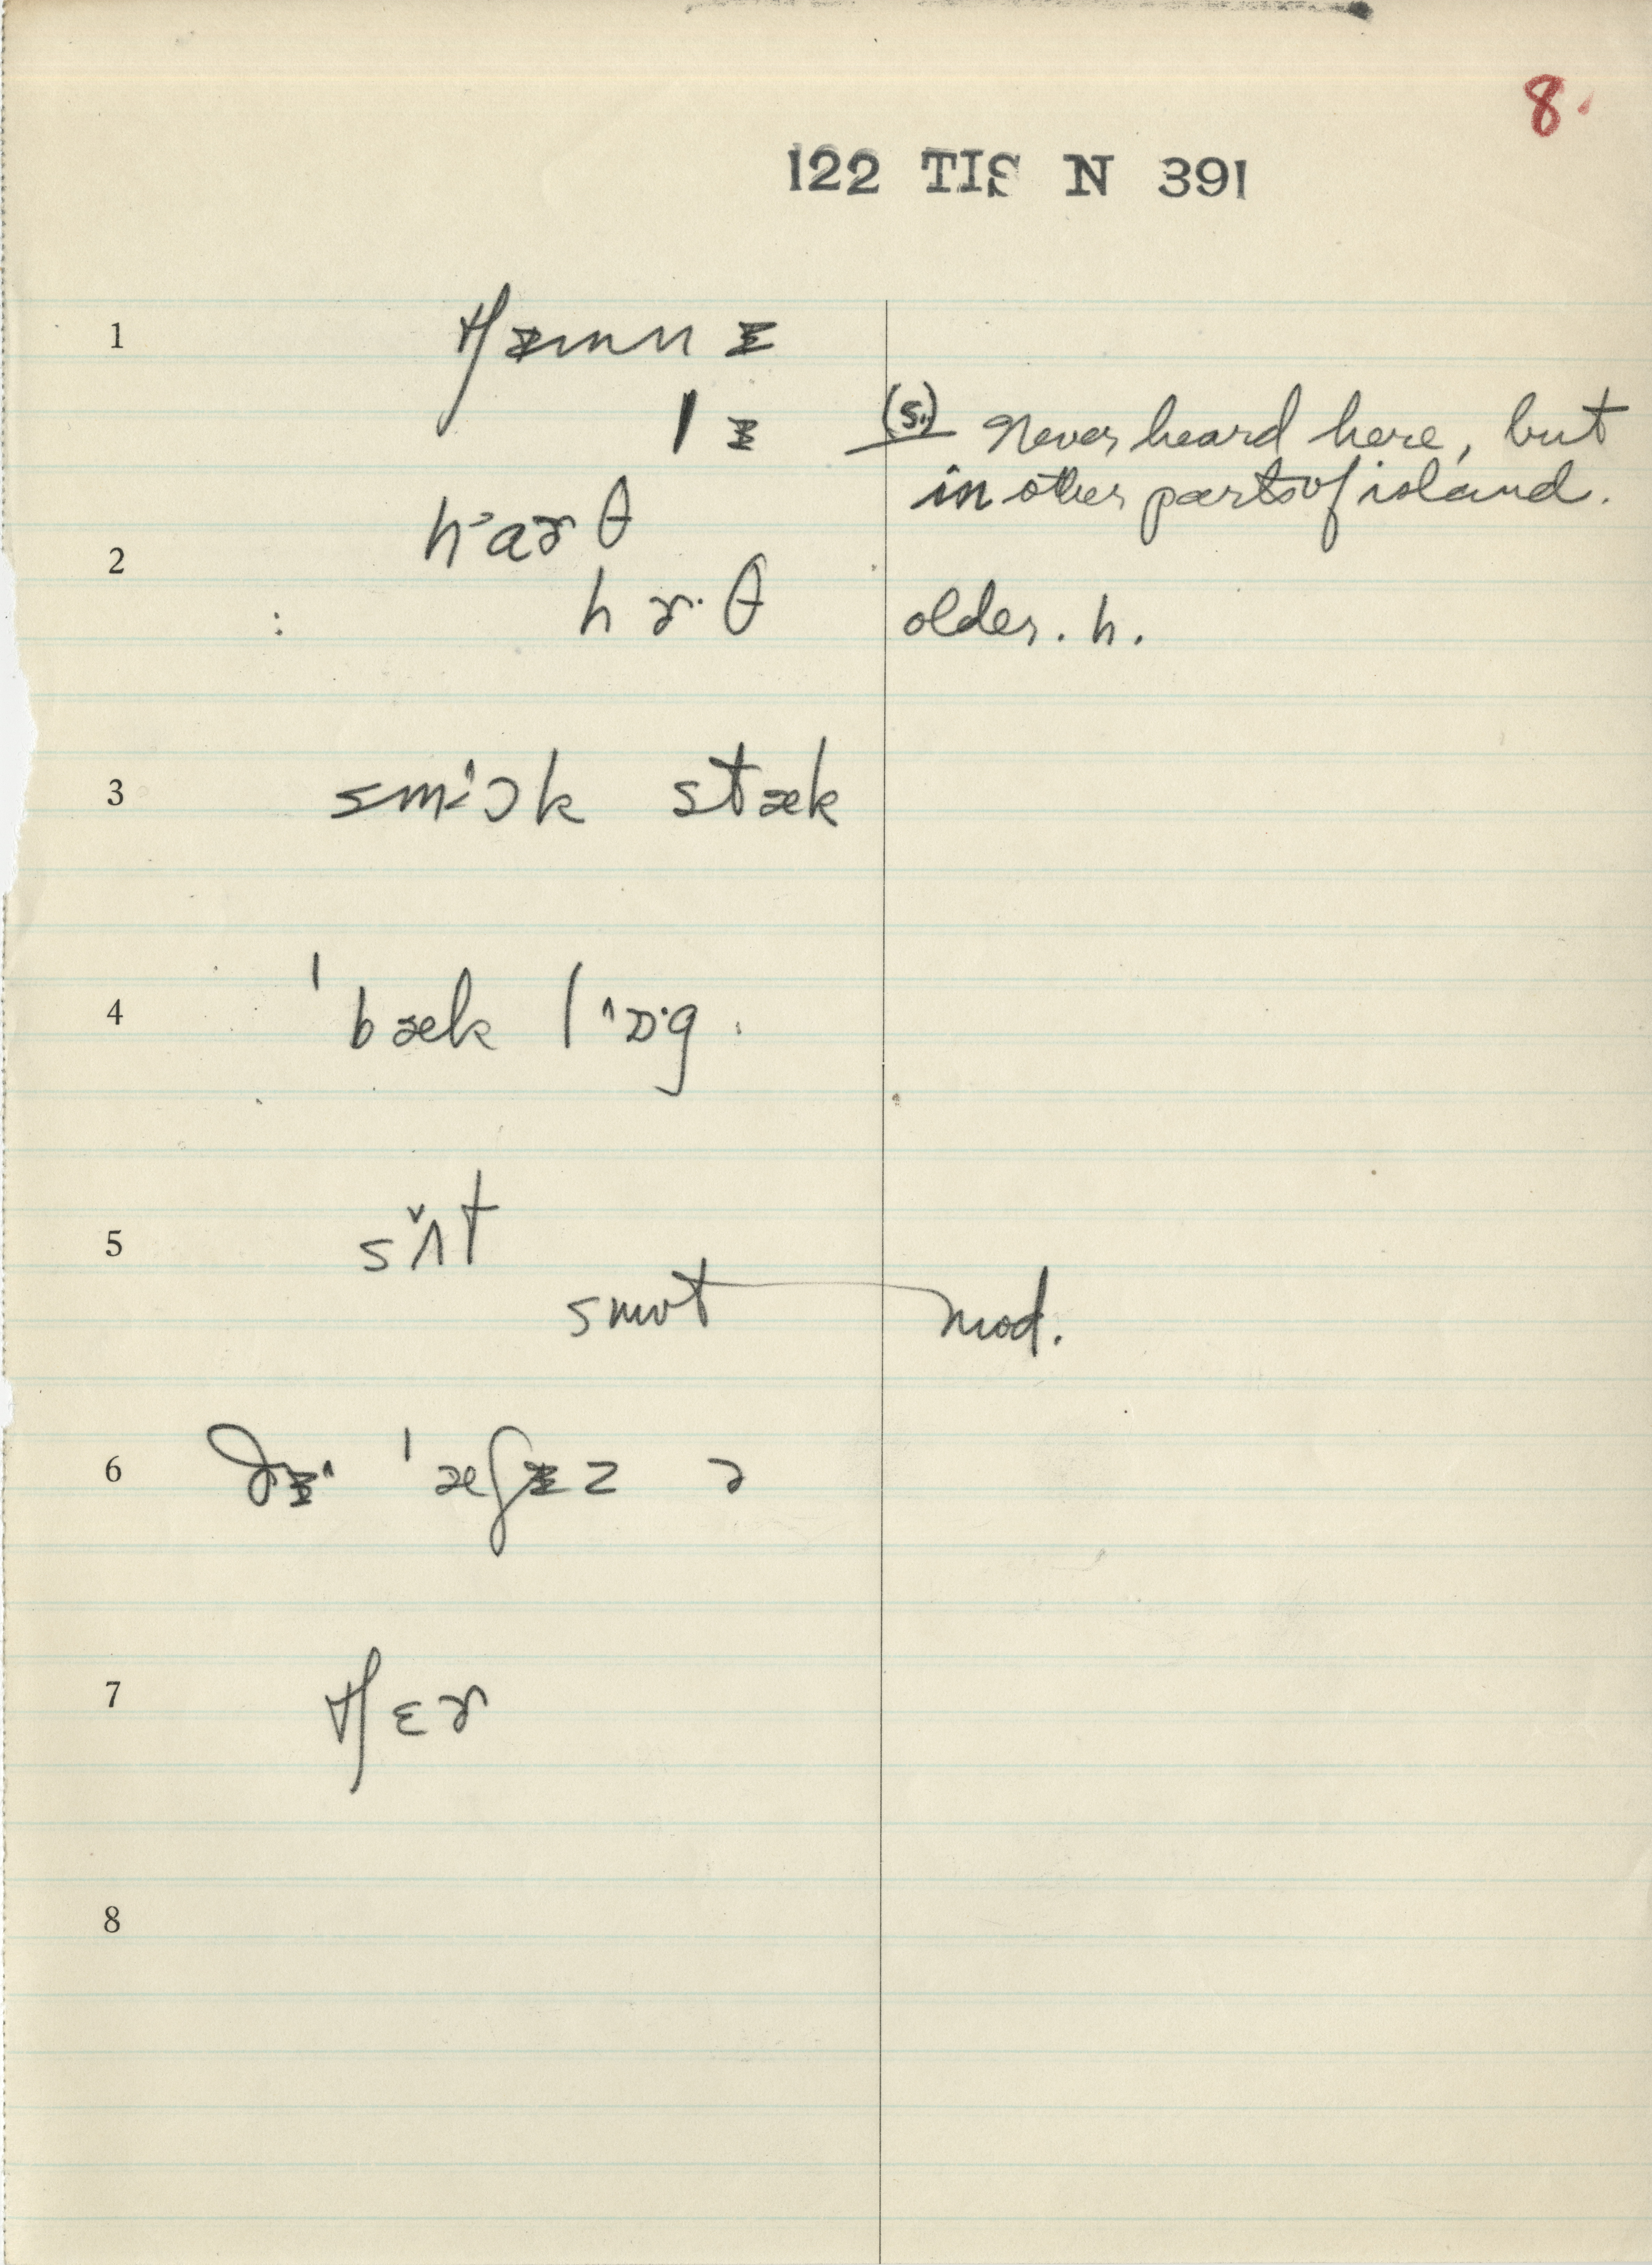 8.
122 TIS N 391
1 tʃɪmnɪ
lɪ (s.) Never heard here, but
in other parts of island.
2 hɑɚθ
hɚ·θ older. h.
3 smɔk stæk
4 ˈbæk lɒ·g
5 sʌt
smʊt mod.
6 ðɪ ˈæʃɪz ə
7 tʃɛɚ
8